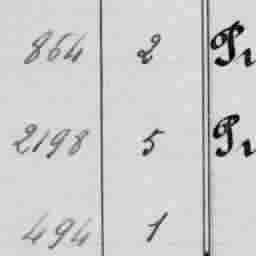 864 2
2198 5
494 1